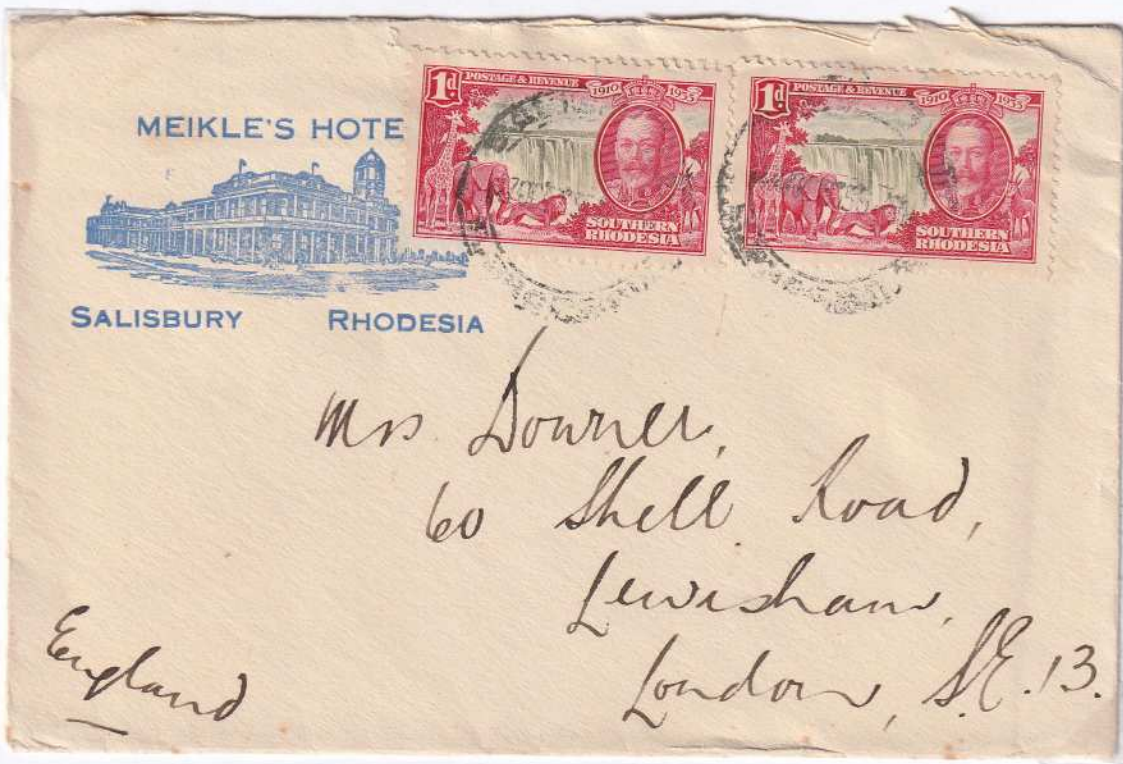 MEIKLE'S HOTE
SALISBURY RHODESIA
1d POSTAGE & REVENUE 1910 1935
SOUTHERN
RHODESIA
1d POSTAGE & REVENUE 1910 1935
SOUTHERN
RHODESIA
Mrs Downer,
60 Shell Road,
Lewisham,
London, S.E. 13.
England